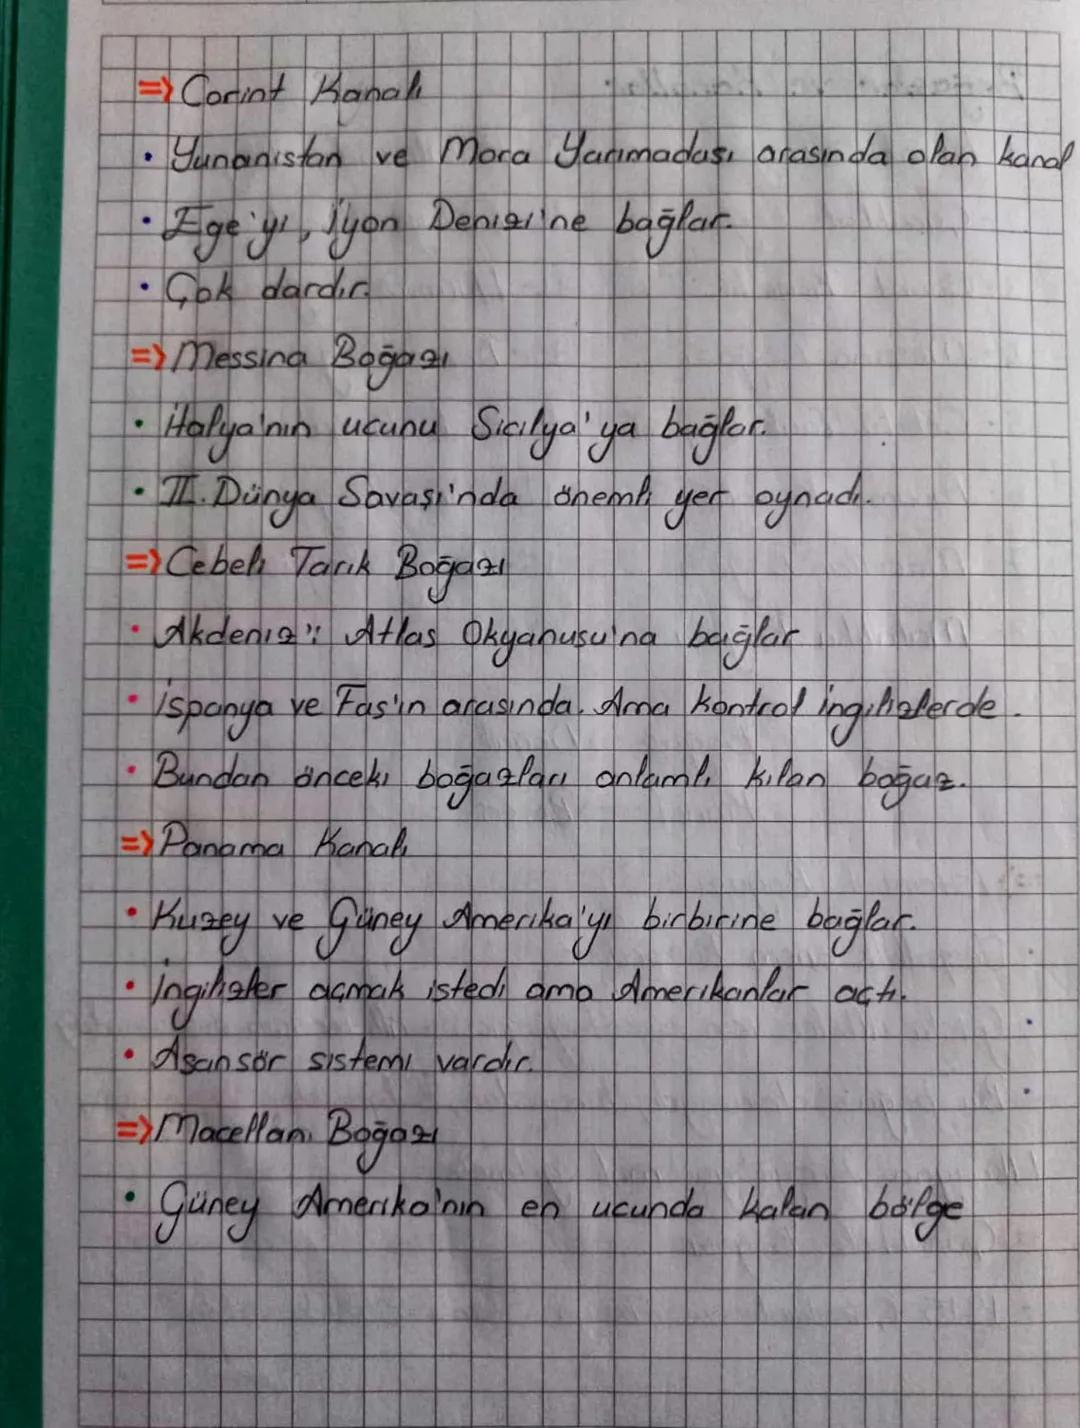 => Corint Kanalı
• Yunanistan ve Mora Yarımadası arasında olan kanal
• Ege'yi, İyon Denizi'ne bağlar.
• Çok dardır.
=> Messina Boğazı
• İtalya'nın ucunu Sicilya'ya bağlar.
• II. Dünya Savaşı'nda önemli yer oynadı.
=> Cebeli Tarık Boğazı
• Akdeniz'i Atlas Okyanusu'na bağlar
• İspanya ve Fas'ın arasında. Ama kontrol İngilizlerde.
• Bundan önceki boğazları anlamlı kılan boğaz.
=> Panama Kanalı
• Kuzey ve Güney Amerika'yı birbirine bağlar.
• İngilizler açmak istedi ama Amerikanlar açtı.
• Asansör sistemi vardır.
=> Macellan Boğazı
• Güney Amerika'nın en ucunda kalan bölge